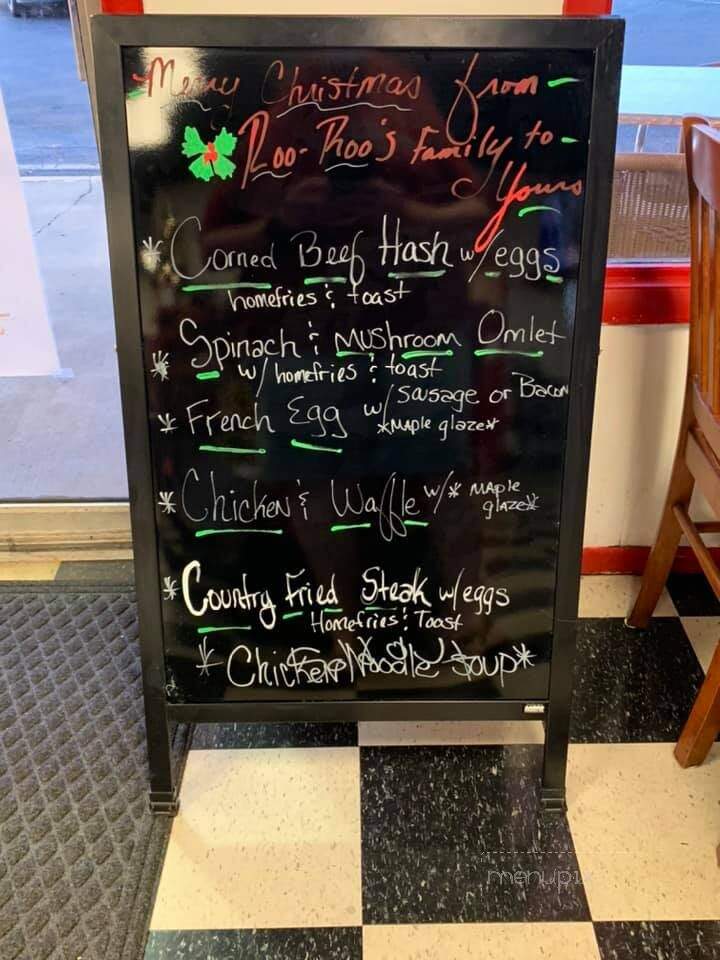 Merry Christmas from
Roo-Roo's Family to
Yours
* Corned Beef Hash w/eggs
homefries & toast
* Spinach & Mushroom Omlet
w/ homefries & toast
* French Egg w/ Sausage or Bacon
*Maple glaze*
* Chicken & Waffle w/* Maple
glaze*
* Country Fried Steak w/eggs
Homefries & Toast
* Chicken Noodle Soup*
menupix